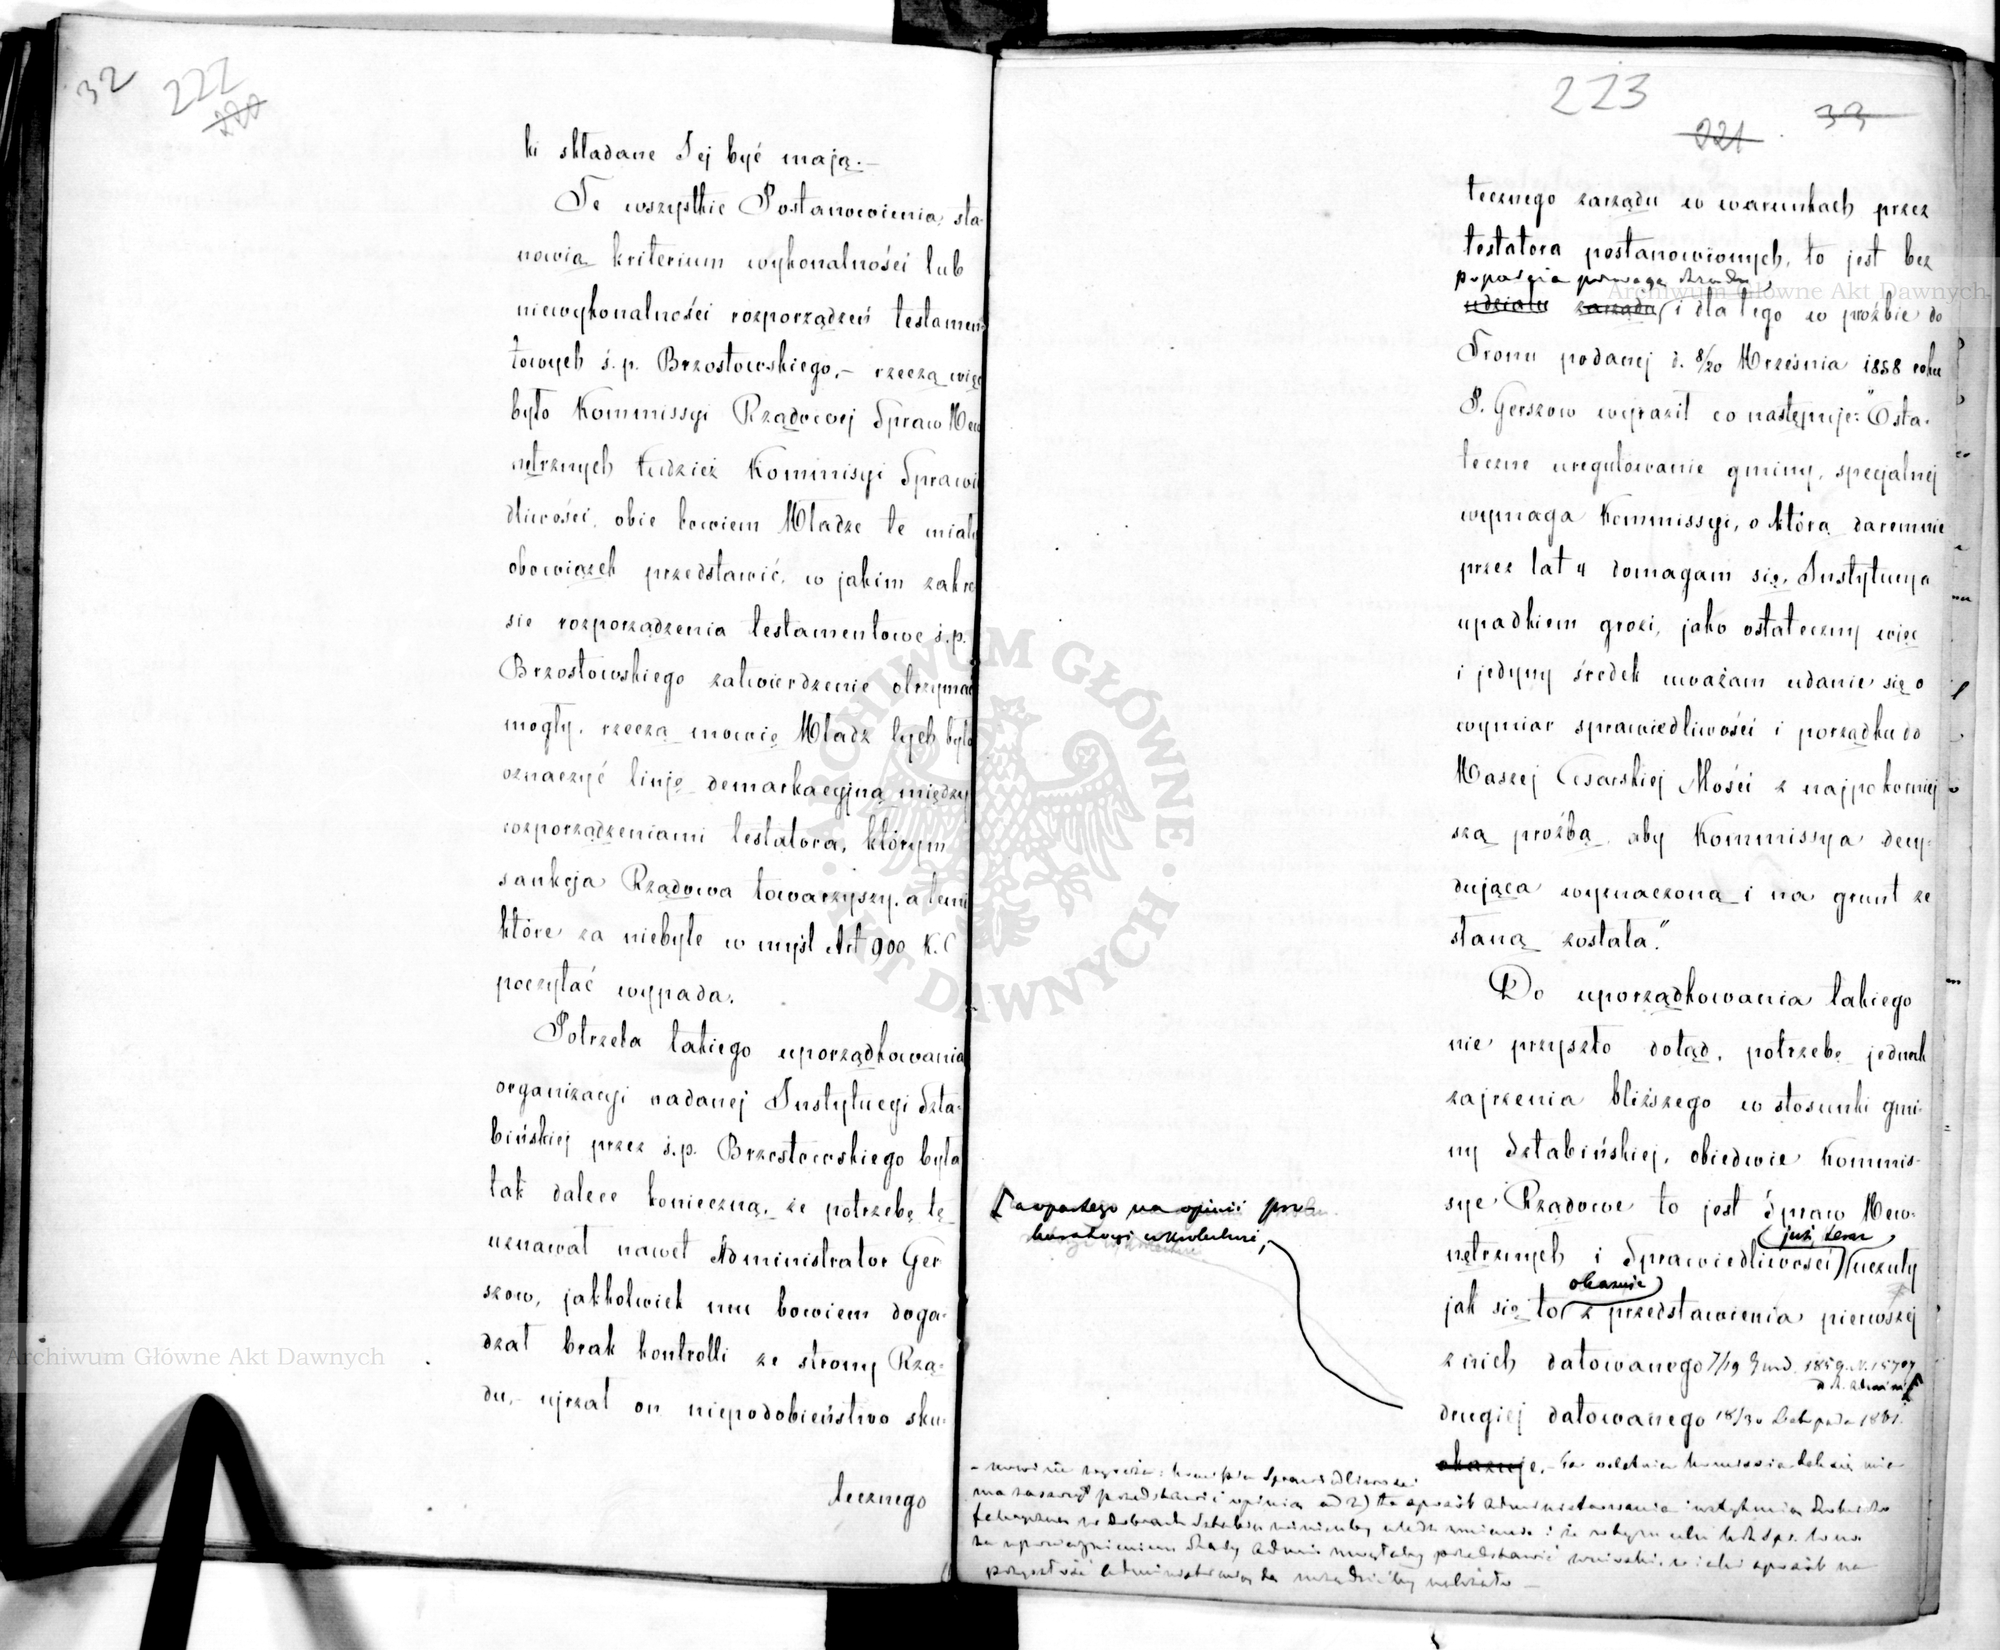 32 222
220
ki składane Jej być mają.—
Te wszystkie Postanowienia, sta-
nowią kriterium wykonalności lub
niewykonalności rozporządzeń testamen-
towych ś. p. Brzostowskiego,— rzeczą więc
było Kommissyi Rządowej Spraw Wew
nętrznych tudzież Kommisyi Sprawie
dliwości, obie bowiem Władze te miały
obowiązek przedstawić, w jakim zakre
sie rozporządzenia testamentowe ś. p.
Brzostowskiego zatwierdzenie otrzymać
mogły, rzeczą mówię Władz tych było
oznaczyć linję demarkacyjną między
rozporządzeniami testatora, którym
sankcja Rządowa towarzyszy, a temi
które za niebyłe w myśl Art 900 K. C
poczytać wypada.
Potrzeba takiego uporządkowania
organizacyi nadanej Instytucyi Szta-
bińskiej przez ś. p. Brzostowskiego była
tak dalece konieczną, że potrzebę tę
uznawał nawet Administrator Ger
szow, jakkolwiek mu bowiem doga-
dzał brak kontrolli ze strony Rzą-
du,— ujrzał on niepodobieństwo sku-
tecznego
223
221 33
tecznego zarządu w warunkach przez
testatora postanowionych, to jest bez
poparcia powagą Rządu,
udziału zarządu, i dla tego w prośbie do
Tronu podanej d. 8/20 Września 1858 roku
P. Gerszow wyraził co następuje: "Osta-
teczne uregulowanie gminy, specjalnej
wymaga Kommissyi, o którą daremnie
przez lat 4 domagam się, Instytucya
upadkiem grozi, jako ostateczny więc
i jedyny środek uważam udanie się o
wymiar sprawiedliwości i porządku do
Waszej Cesarskiej Mości z najpokorniej
szą prośbą, aby Kommissya decy-
dująca wyznaczoną i na grunt ze
słaną została."
Do uporządkowania takiego
nie przyszło dotąd, potrzebę jednak
zajrzenia bliższego w stosunki gmi-
ny Sztabińskiej, obiedwie Kommis-
sye Rządowe to jest Spraw Wew-
nętrznych i Sprawiedliwości już teraz uczuły
jak się to okazuje z przedstawienia pierwszej
z nich datowanego 7/19 1859 N. 15707
drugiej datowanego 18/30 Listopada 1861.
okazuje.—
opartego na opinii pro-
kuratoryi
Komissia Sprawiedliwości
przedstawić opinią ad 2) sposób administrowania
w dobrach Sztabin
przedstawić wnioski, w jaki sposób na
przyszłość administracyą należało —